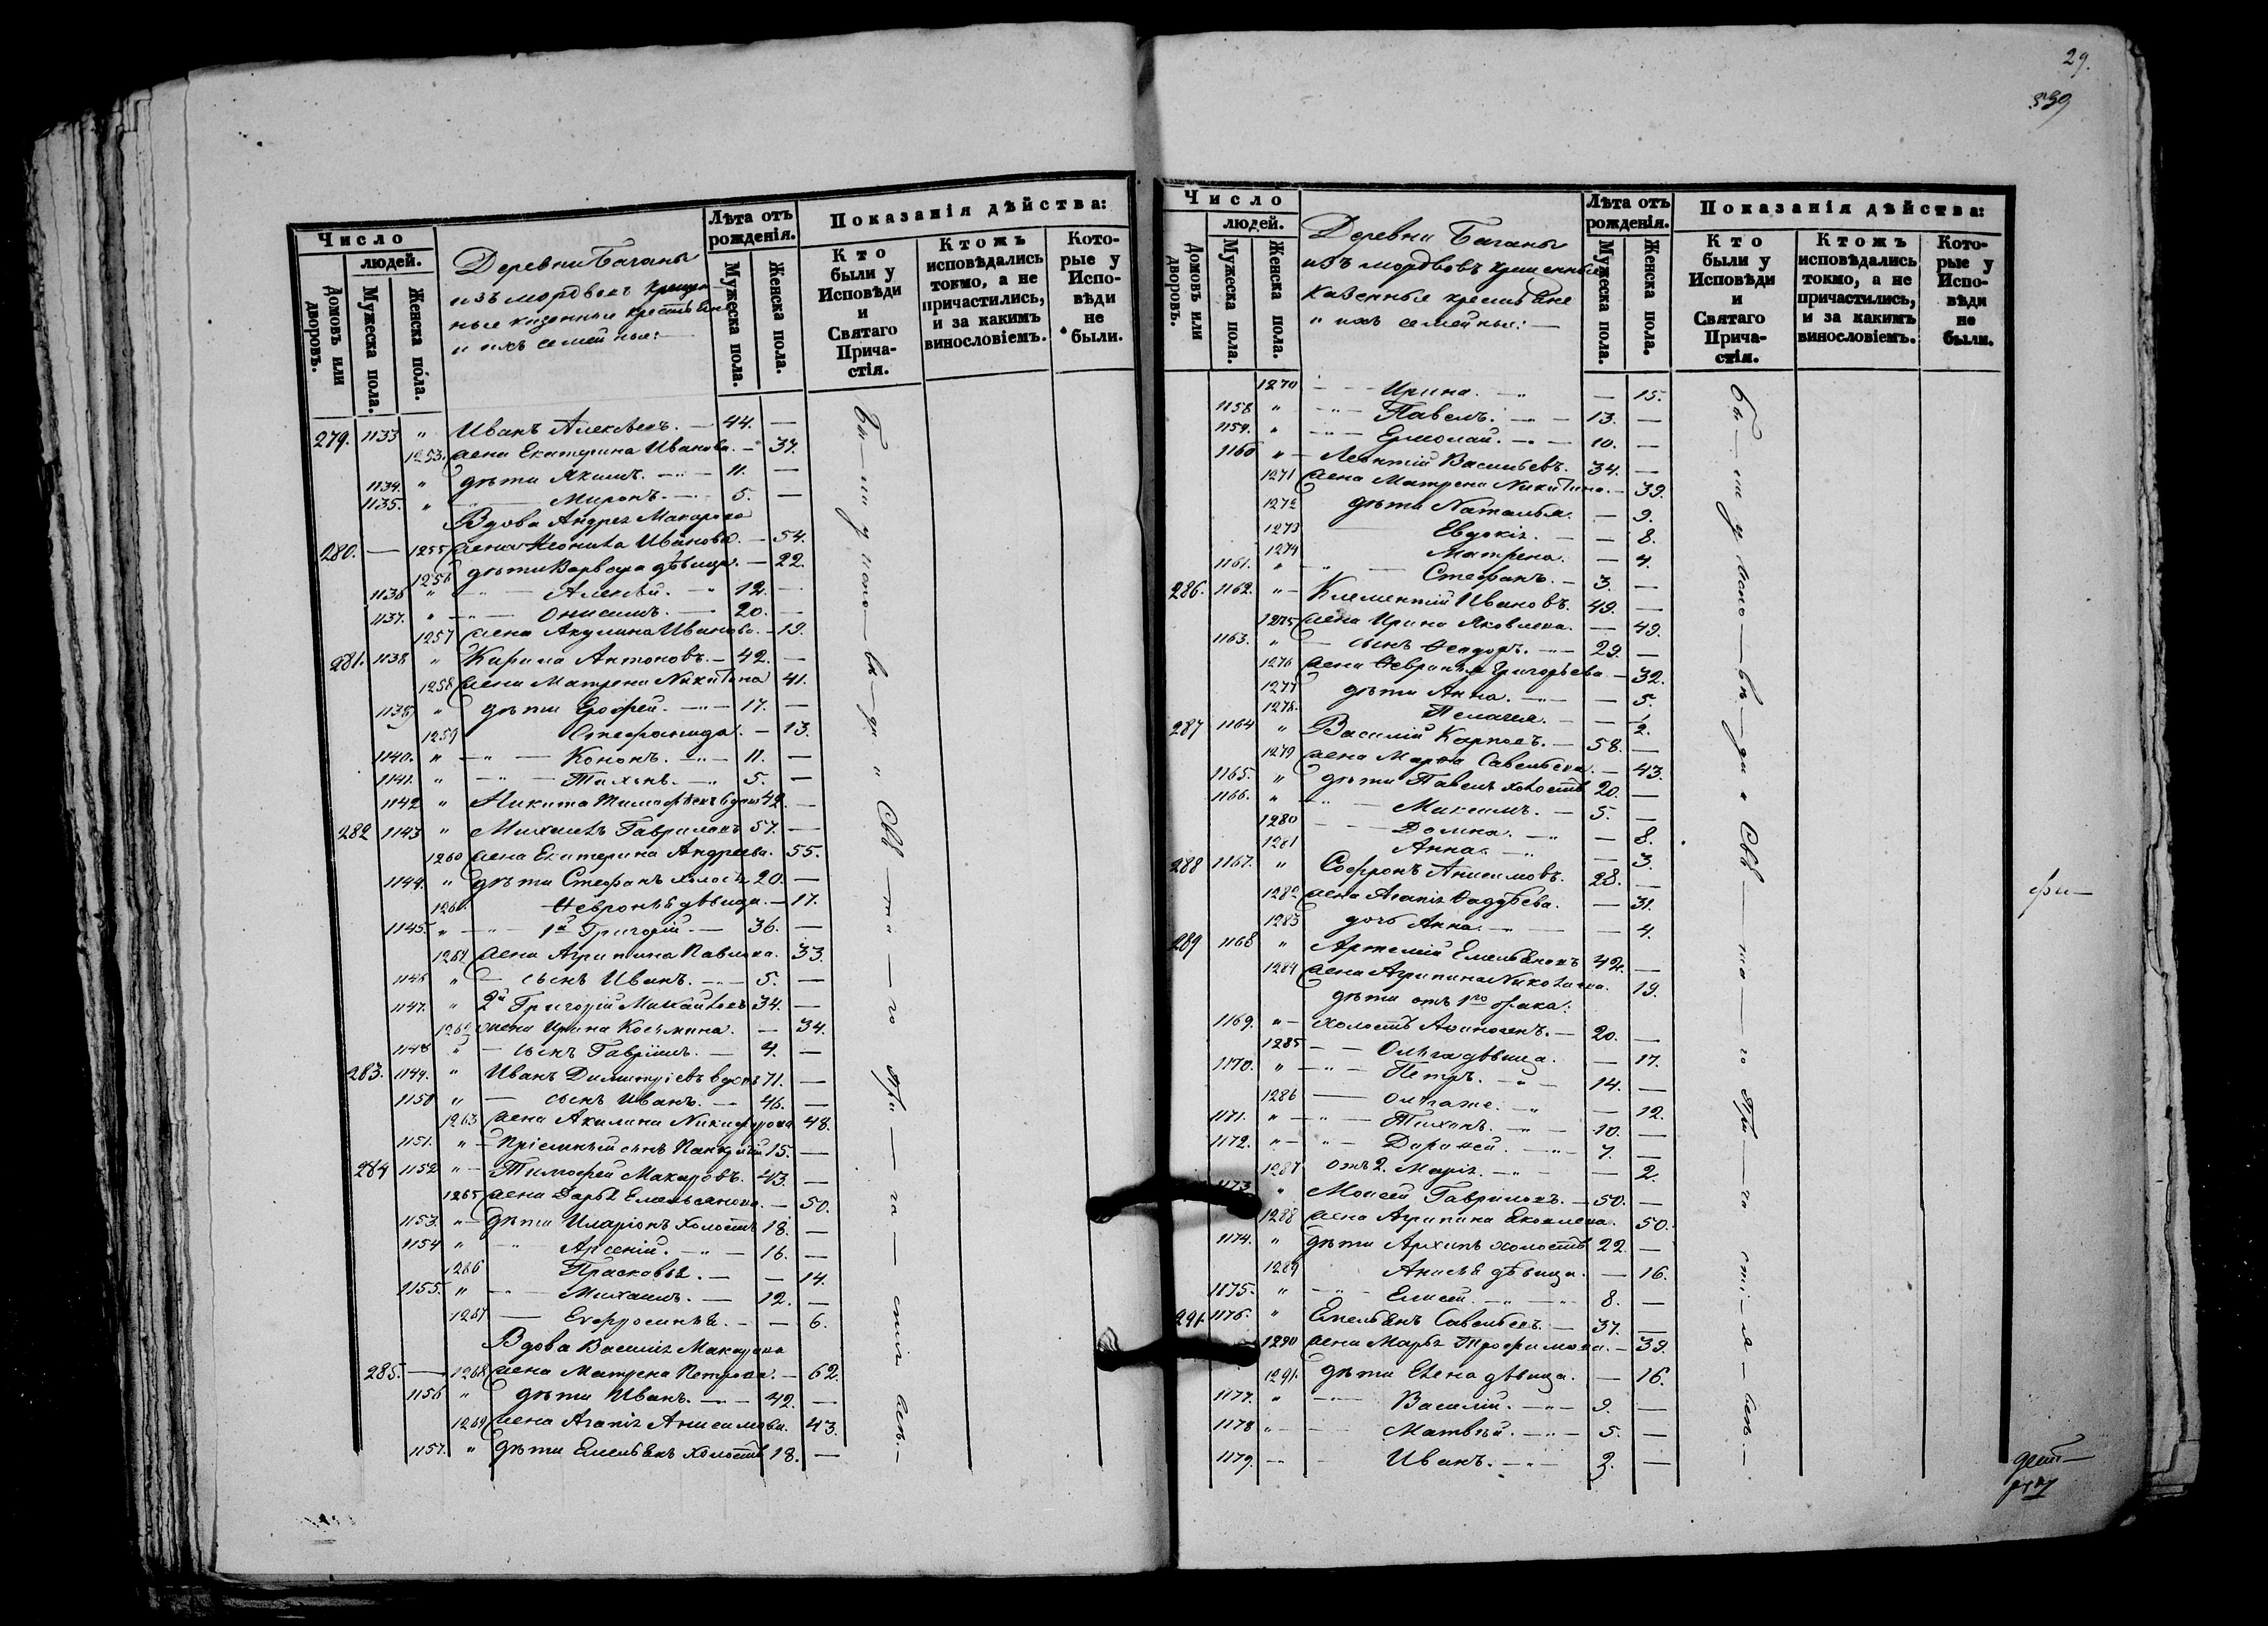 Число
людей.
Домовъ или дворовъ.
Мужеска пола.
Женска пола.
Деревни Баганы
изъ мордвовъ крещен-
ные казенные крестьяне
и ихъ семейные:
Лѣта отъ рожденія.
Мужеска пола.
Женска пола.
Показанія дѣйства:
Кто были у Исповѣди и Святаго Причастія.
Ктожъ исповѣдались токмо, а не причастились, и за какимъ винословіемъ.
Которые у Исповѣди не были.
279. 1133 " Иванъ Алексѣевъ. — 44. —
1253. жена Екатерина Иванова. — 37.
1134. " дѣти Якимъ. — 11. —
1135. " — Миронъ. — 5. —
Вдова Андрея Макарова
280. — 1255 жена Ѳеонила Иванова. — 54.
1256 дѣти Варвара дѣвица. — 22.
1136 " — Алексѣй. — 12. —
1137. " — Онисимъ. — 20. —
1257 жена Акулина Иванова. — 19.
281. 1138 " Кирила Антоновъ. — 42. —
1258 жена Матрена Никитина 41.
1139 " дѣти Ерофей. — 17. —
1259 Стефанида. — 13.
1140. " — Кононъ. — 11. —
1141. " — Тихонъ. — 5. —
1142 " Никита Тимофѣевъ вдовъ 42. —
282 1143 " Михаилъ Гавриловъ 57. —
1260 жена Екатерина Андреева. 55.
1144. " дѣти Стефанъ холостъ 20. —
1261. Ѳевронья дѣвица. — 17.
1145. " — 1й Григорій. — 36. —
1261 жена Агрипина Павлова. 33.
1146 " — сынъ Иванъ. — 5. —
1147. " 2й Григорій Михайловъ 34. —
1262 жена Ирина Косьмина. — 34.
1148 " — сынъ Гавріилъ. — 4. —
283. 1149. " Иванъ Димитріевъ вдовъ 71. —
1150 " — сынъ Иванъ. — 46. —
1263 жена Акилина Никифорова 48.
1151. " — Пріемный сынъ Панкратій 15. —
284 1152 " — Тимофей Макаровъ. 43. —
1265 жена Дарья Емельянова. — 50.
1153. " — дѣти Иларіонъ холостъ 18. —
1154 " — Арсеній. — 16. —
1266 Прасковья. — — 14.
1155. " — Михаилъ. — 12. —
1267 — Ефросинья. — — 6.
Вдова Василія Макарова
285. — 1268 жена Матрена Петрова. — 62.
1156 " дѣти Иванъ. — 42. —
1269 жена Агапія Анисимова. 43.
1157. " дѣти Емельянъ холостъ 18. —
Бы — ли у испо — вѣ — ди и Свя — та — го При — ча — стія всѣ. —
29.
339
Число
людей.
Домовъ или дворовъ.
Мужеска пола.
Женска пола.
Деревни Баганы
изъ мордвовъ крещенные
казенные крестьяне
и ихъ семейные: —
Лѣта отъ рожденія.
Мужеска пола.
Женска пола.
Показанія дѣйства:
Кто были у Исповѣди и Святаго Причастія.
Ктожъ исповѣдались токмо, а не причастились, и за какимъ винословіемъ.
Которые у Исповѣди не были.
1270 — Ирина. — — 15.
1158 " — Павелъ. — 13. —
1159. " — Ермолай. — 10. —
1160 " — Леонтій Васильевъ. 34. —
1271 жена Матрена Никитина. — 39.
1272 дѣти Наталья. — 9.
1273 Евдокія. — — 8.
1274 Матрена. — 4.
1161. " — Стефанъ. — 3. —
286. 1162. " — Клементій Ивановъ. 49. —
1275 жена Ирина Яковлева. — 49.
1163. " — сынъ Ѳеодоръ. — 29. —
1276 жена Ѳевронья Григорьева. — 32.
1277 дѣти Анна. — — 5.
1278. Пелагея. — — 2.
287 1164 " Василій Карповъ. — 58. —
1279 жена Марѳа Савельева. — 43.
1165. " дѣти Павелъ холостъ 20. —
1166. " — Максимъ. — 5. —
1280 — Домна. — — 8.
1281 Анна. — — 3.
288 1167. " Софронъ Анисимовъ. 28. —
1282 жена Агапія Фаддѣева. — 31.
1283 дочь Анна. — — 4.
289 1168 " Артемій Емельяновъ 42. —
1284 жена Агрипина Николаева. 19.
дѣти отъ 1го брака:
1169. " — холостъ Аѳиногенъ. — 20. —
1285 — Ольга дѣвица. — 17.
1170. " — Петръ. — 14. —
1286 — Ольга же. — — 12.
1171. " — Тихонъ. — 10. —
1172. " — Дороѳей. — 7. —
1287 отъ 2. Марія. — — 2.
1173 " Моисей Гавриловъ. — 50. —
1288 жена Агрипина Яковлева. 50.
1174. " дѣти Архипъ холостъ 22. —
1289 Анисья дѣвица. — 16.
1175. " — Елисей. — 8. —
291. 1176. " Емельянъ Савельевъ. — 37. —
1290 жена Марья Трофимова. — 39.
1291. дѣти Елена дѣвица. — 16.
1177. " — Василій. — 9. —
1178 " — Матвѣй. — 5. —
1179. — Иванъ. — 2. —
Бы — ли у испо — вѣ — ди и Свя — та — го При — ча — сті — я — всѣ. —